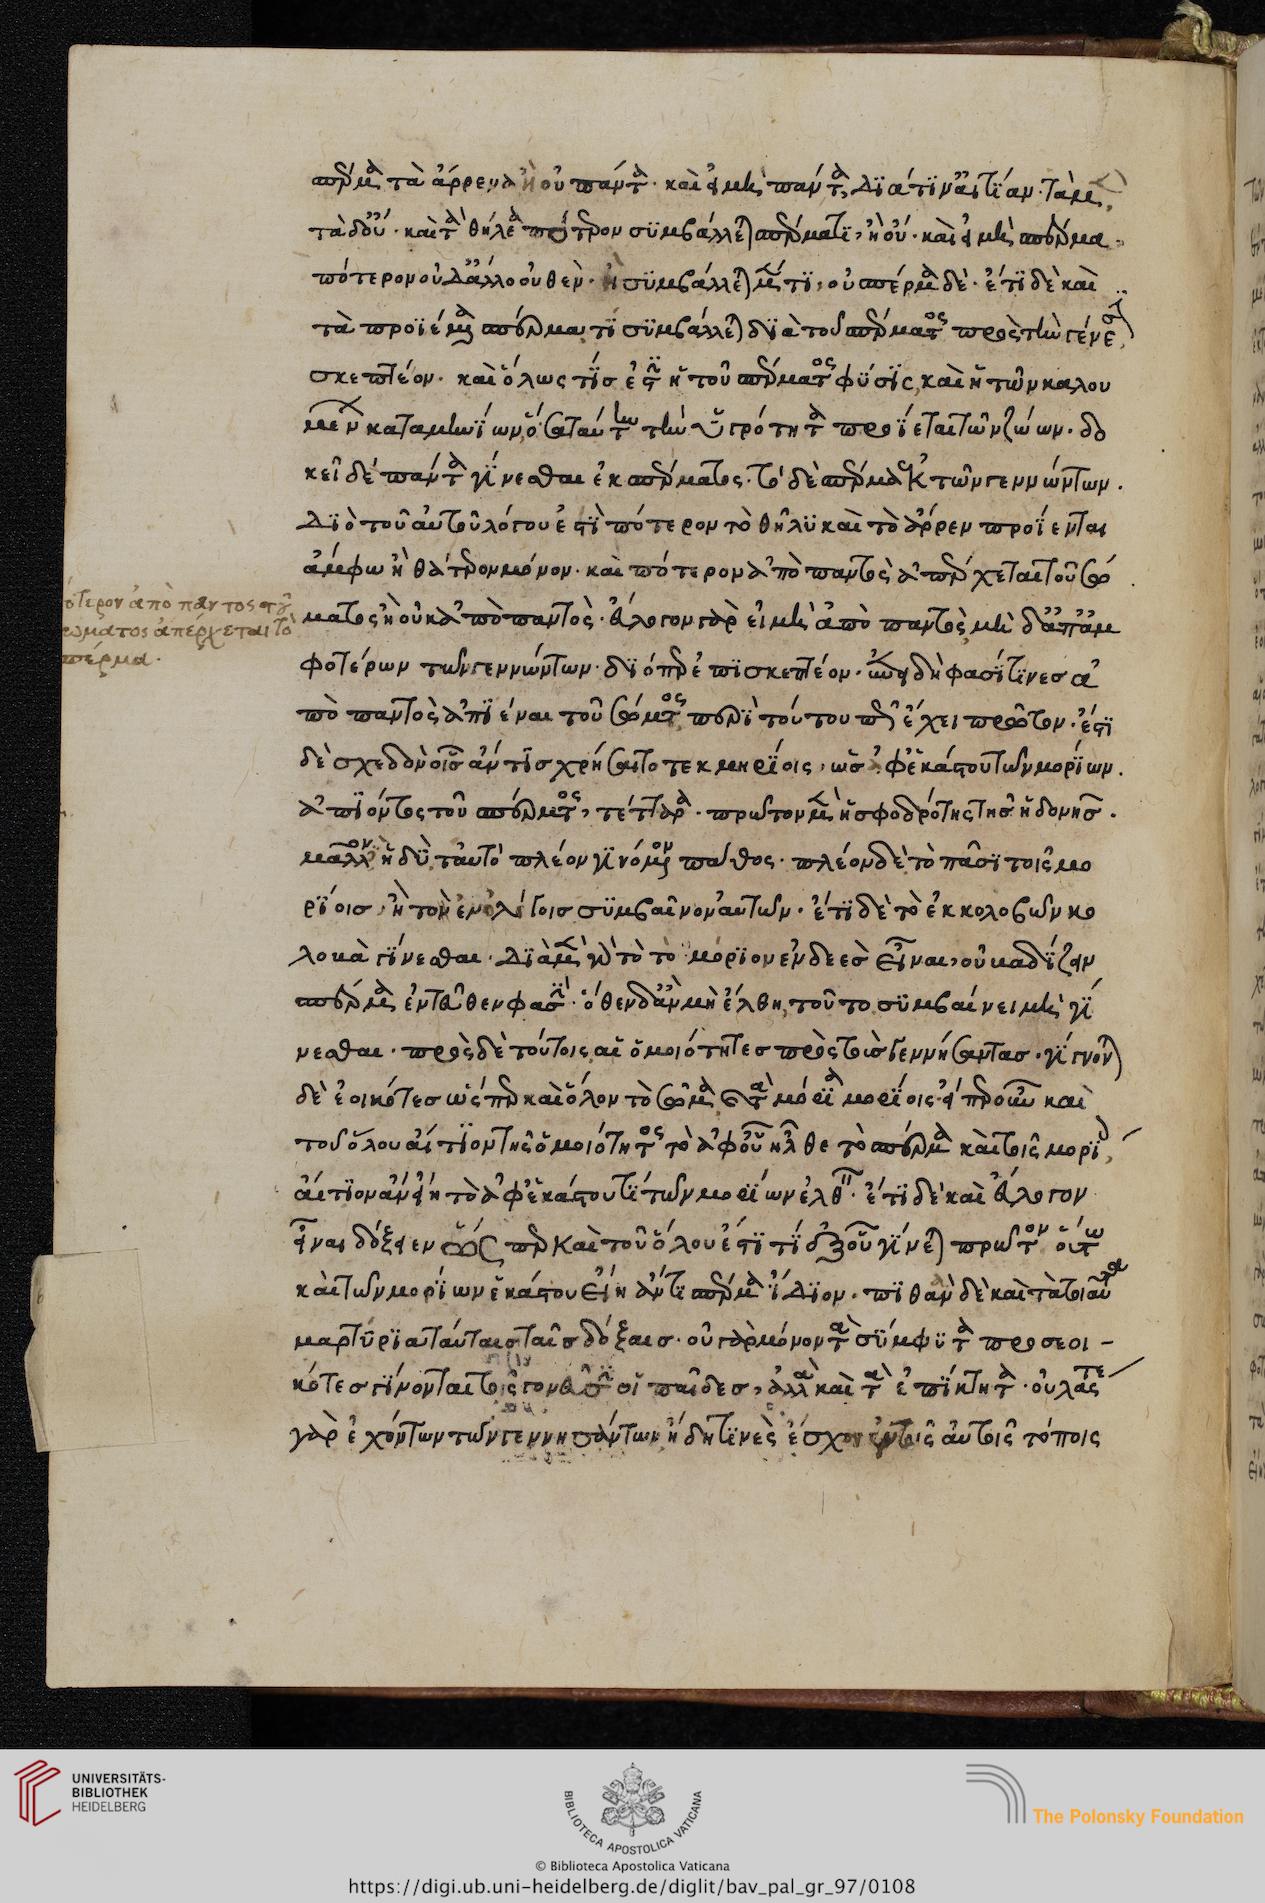 σπέρμα τὰ ἄρρενα ἢ οὐ πάντα· καὶ εἰ μὴ πάντα, διὰ τίν' αἰτίαν τὰ μὲν
τὰ δ' οὔ· καὶ τὰ θήλεα πότερον συμβάλλεται σπέρματι, ἢ οὔ· καὶ εἰ μὴ σπέρμα
πότερον οὐδ' ἄλλο οὐθὲν· ἢ συμβάλλεται μέν τι, οὐ σπέρμα δὲ· ἔτι δὲ καὶ
τὰ προϊέμενα σπέρμα τί συμβάλλεται διὰ τοῦ σπέρματος πρὸς τὴν γένεσιν
σκεπτέον· καὶ ὅλως τίς ἐστιν ἡ τοῦ σπέρματος φύσις, καὶ ἡ τῶν καλου
μένων καταμηνίων, ὅσα ταύτην τὴν ὑγρότητα προΐεται τῶν ζώων· δο
κεῖ δὲ πάντα γίνεσθαι ἐκ σπέρματος· τὸ δὲ σπέρμα ἐκ τῶν γεννώντων·
διὸ τοῦ αὐτοῦ λόγου ἐστὶ πότερον τὸ θῆλυ καὶ τὸ ἄρρεν προΐενται
ἄμφω ἢ θάτερον μόνον· καὶ πότερον ἀπὸ παντὸς ἀπέρχεται τοῦ σώ
ματος ἢ οὐκ ἀπὸ παντὸς· εὔλογον γὰρ εἰ μὴ ἀπὸ παντὸς, μὴ δ' ἀπ' ἀμ
φοτέρων τῶν γεννώντων· διόπερ ἐπισκεπτέον· ἐπειδὴ φασί τινες ἀ
πὸ παντὸς ἀπιέναι τοῦ σώματος, περὶ τούτου πῶς ἔχει πρῶτον· ἔστι
δὲ σχεδὸν οἷς ἄν τις χρήσαιτο τεκμηρίοις, ὡς ἀφ' ἑκάστου τῶν μορίων·
ἀπιόντος τοῦ σπέρματος, τέτταρα· πρῶτον μὲν ἡ σφοδρότης τῆς ἡδονῆς·
μᾶλλον ἡδὺ ταὐτὸ πλέον γινόμενον πάθος· πλέον δὲ τὸ πᾶσι τοῖς μο
ρίοις, ἢ τὸ ἐν ὀλίγοις συμβαῖνον αὐτῶν· ἔτι δὲ τὸ ἐκ κολοβῶν κο
λοβὰ γίνεσθαι· διὰ μὲν γὰρ τὸ τὸ μόριον ἐνδεὲς εἶναι, οὐ βαδίζειν
σπέρμα ἐντεῦθεν φασὶν· ὅθεν δ' ἂν μὴ ἔλθῃ, τοῦτο συμβαίνει μὴ γί
νεσθαι· πρὸς δὲ τούτοις, αἱ ὁμοιότητες πρὸς τοὺς γεννήσαντας· γίγνονται
δὲ ἐοικότες ὥσπερ καὶ ὅλον τὸ σῶμα καὶ τὰ μόρια μορίοις· εἴπερ οὖν καὶ
τοῦ ὅλου αἴτιον τῆς ὁμοιότητος τὸ ἀφ' οὗ ἦλθε τὸ σπέρμα καὶ τοῖς μορίοις
αἴτιον ἂν εἴη τὸ ἀφ' ἑκάστου τι τῶν μορίων ἐλθεῖν· ἔτι δὲ καὶ εὔλογον
εἶναι δόξειεν ὥσπερ καὶ τοῦ ὅλου ἐστί τι ἐξ οὗ γίνεται πρῶτον οὕτω
καὶ τῶν μορίων ἑκάστου εἴη ἄν τι σπέρμα ἴδιον· πιθανὰ δὲ καὶ τὰ τοιαῦτα
μαρτύρια ταύταις ταῖς δόξαις· οὐ γὰρ μόνον τὰ σύμφυτα προσεοι-
κότες γίνονται τοῖς γονεῦσιν οἱ παῖδες, ἀλλὰ καὶ τὰ ἐπίκτητα· οὐλάς τε
γὰρ ἐχόντων τῶν γεννησάντων ἤδη τινὲς ἔσχον ἐν τοῖς αὐτοῖς τόποις
ότερον ἀπὸ παντος τοῦ
ώματος ἀπέρχεται τὸ
πέρμα·
UNIVERSITÄTS-
BIBLIOTHEK
HEIDELBERG
BIBLIOTECA APOSTOLICA VATICANA
The Polonsky Foundation
© Biblioteca Apostolica Vaticana
https://digi.ub.uni-heidelberg.de/diglit/bav_pal_gr_97/0108